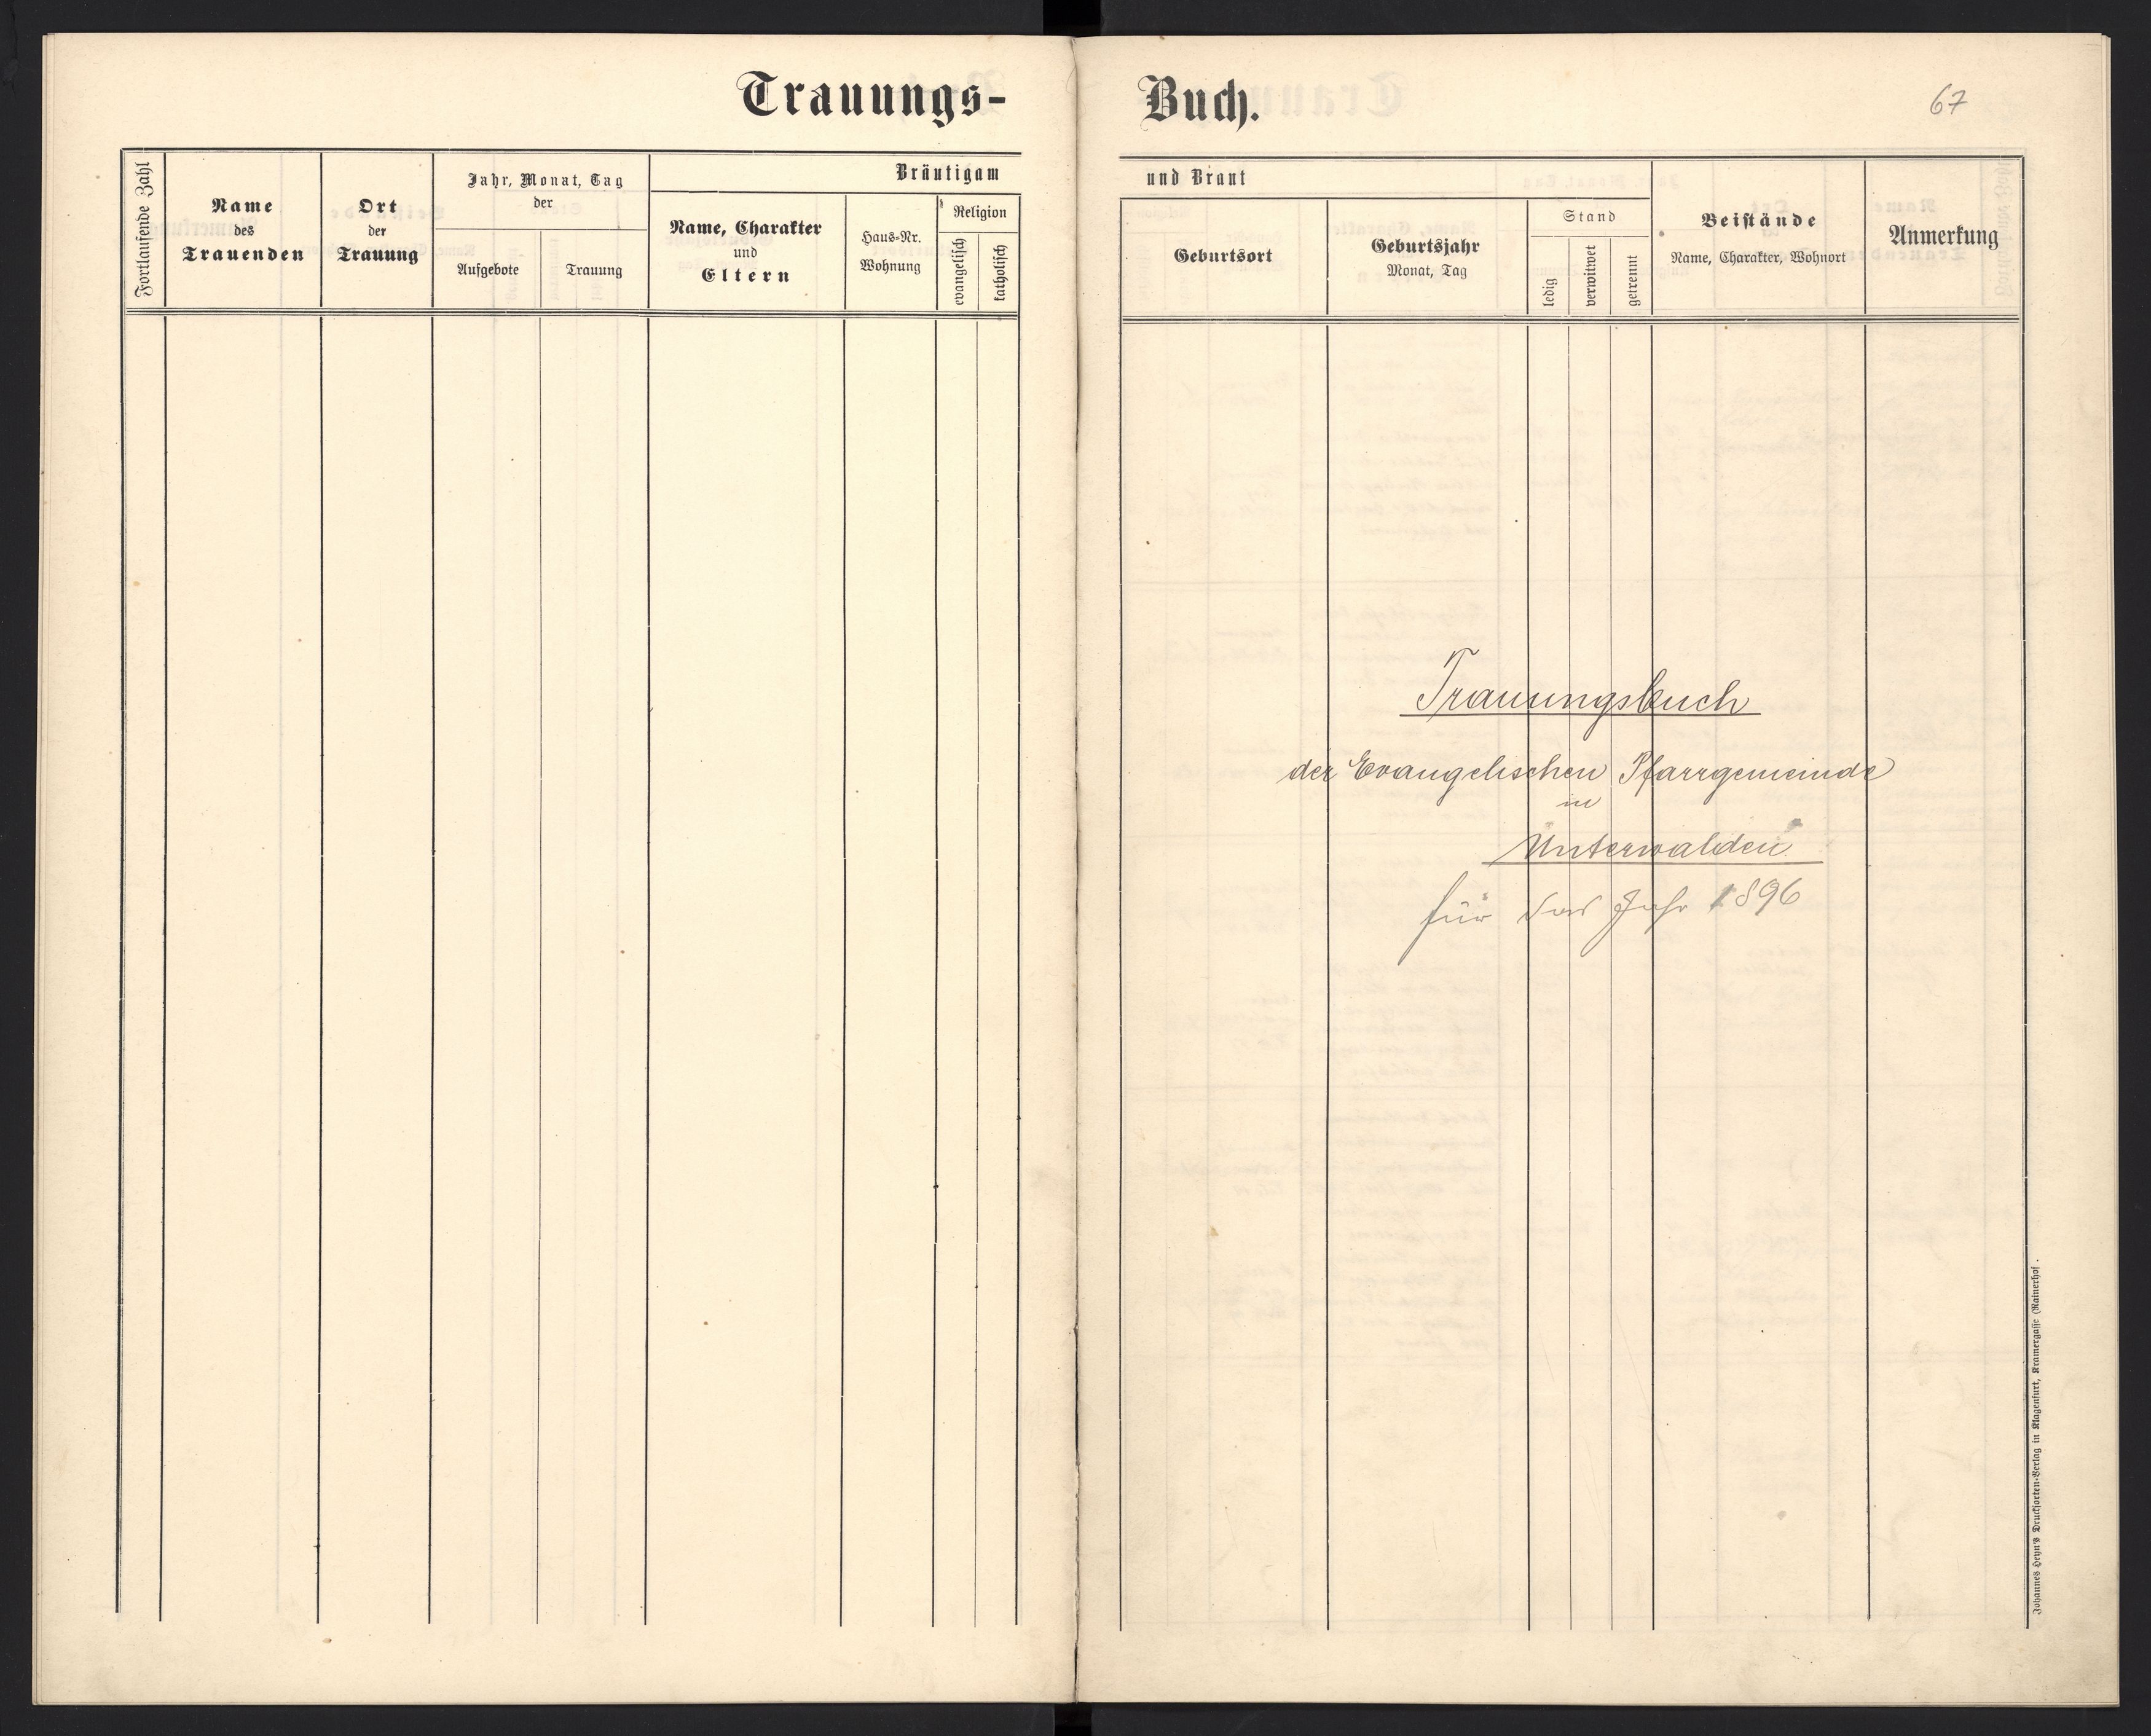 Trauungs-
Buch.
67
Fortlaufende Zahl
Name
des
Trauenden
Ort
der
Trauung
Jahr, Monat, Tag
der
Aufgebote
Trauung
Bräutigam
Name, Charakter
und
Eltern
Haus-Nr.
Wohnung
Religion
evangelisch
katholisch
und Braut
Geburtsort
Geburtsjahr
Monat, Tag
Stand
ledig
verwitwet
getrennt
Beistände
Name, Charakter, Wohnort
Anmerkung
Trauungsbuch
der Evangelischen Pfarrgemeinde
in
Unterwalden
für das Jahr 1896
Johannes Heyn's Drucksorten-Verlag in Klagenfurt, Kramergasse (Rainerhof).